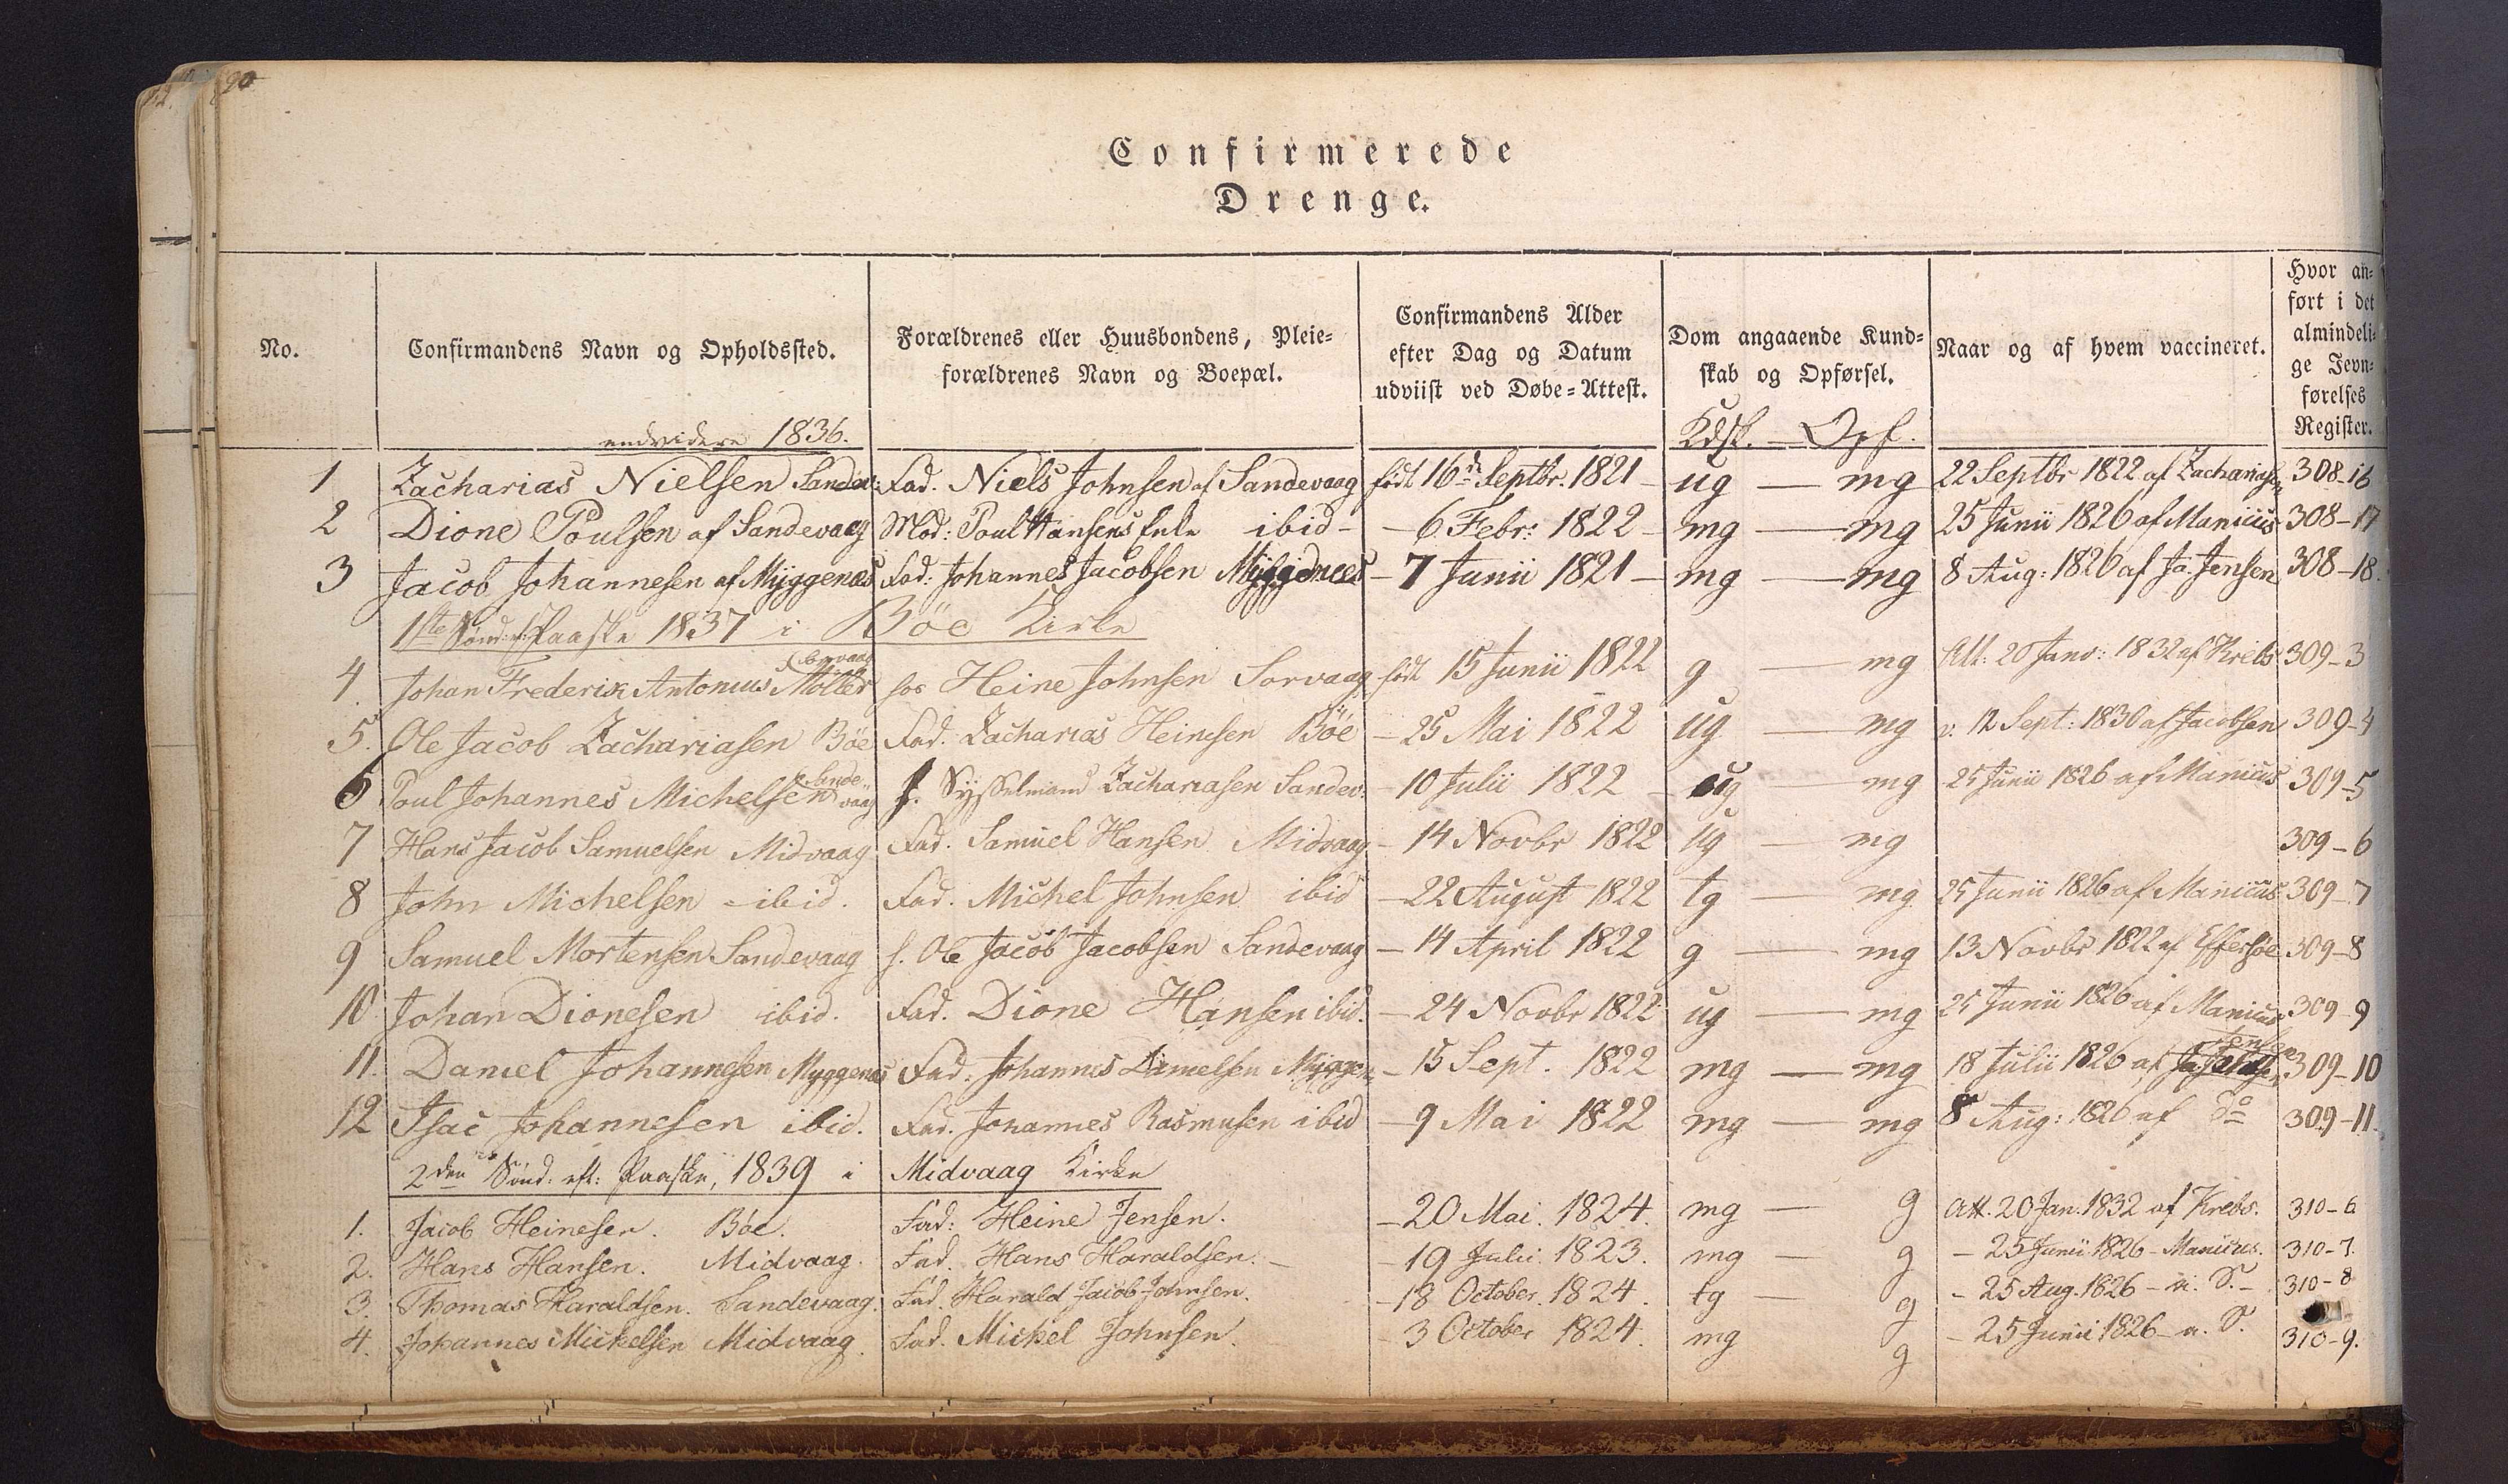 90
Confirmerede
Drenge.
No. Confirmandens Navn og Opholdssted. Forældrenes eller Huusbondens, Pleie=forældrenes Navn og Boepæl. Confirmandens Alder efter Dag og Datum udviist ved Døbe=Attest. Dom angaaende Kund=skab og Opførsel. Naar og af hvem vaccineret. Hvor an=ført i det almindeli=ge Jevn=førelses Register.
endvidere 1836. Kdsk. — Opf.
1 Zacharias Nielsen Sandev: Fad. Niels Johnsen af Sandevaag født 16de Septbr. 1821 – ug — mg 22 Septbr 1822 af Zachariasen 308-16
2 Dione Poulsen af Sandevaag Mod: Poul Hansens Enke ibid – – 6 Febr: 1822 – mg — mg 25 Junii 1826 af Manicus 308-17
3 Jacob Johannesen af Myggenæs Fad: Johannes Jacobsen Myggenæs – 7 Junii 1821 – mg — mg 8 Aug: 1826 af Ja. Jensen 308-18.
1ste Sønd: e. Paaske 1837 i Böe Kirke
4. Johan Frederik Antonius Møller Sørvaag hos Heine Johnsen Sorvaag født 15 Junii 1822 g — mg Att: 20 Janv: 1832 af Krebs 309-3
5. Ole Jacob Zachariasen Böe Fad. Zacharias Heinesen Böe – 25 Mai 1822 ug — mg v. 12 Sept: 1830 af Jacobsen 309-4
6 Poul Johannes Michelsen Sandevaag f. Sysselmand Zachariasen Sandev: – 10 Julii 1822 – ug mg 25 Junii 1826 af Manicus 309-5
7 Hans Jacob Samuelsen Midvaag Fad. Samuel Hansen Midvaag – 14 Novbr 1822 ug — mg 309-6
8 John Michelsen – ibid. Fad. Michel Johnsen ibid – 22 August 1822 tg — mg 25 Junii 1826 af Manicus 309-7
9 Samuel Mortensen Sandevaag f. Ole Jacob Jacobsen Sandevaag – 14 April 1822 g — mg 13 Novbr 1822 af Effersøe 309-8
10 Johan Dionesen ibid. Fad. Dione Hansen ibid. – 24 Novbr 1822 ug — mg 25 Junii 1826 af Manicus 309-9
11. Daniel Johannesen Myggenæs Fad. Johannes Danielsen Myggen: – 15 Sept. 1822 mg — mg 18 Julii 1826 af Ja. Jensen 309-10
12 Isac Johannesen ibid. Fad. Johannes Rasmusen ibid – 9 Mai 1822 mg — mg 8 Aug: 1826 af Do 309-11.
2den Sönd. eft: Paaske, 1839 i Midvaag Kirke
1. Jacob Heinesen. Böe. Fad: Heine Jensen. – 20 Mai. 1824. mg — g Att. 20 Jan. 1832 af Krebs. 310-6
2. Hans Hansen. Midvaag. Fad. Hans Haraldsen. – – 19 Julii. 1823. mg — g – 25 Junii 1826 – Manicus. 310-7.
3. Thomas Haraldsen. Sandevaag. Fad. Harald Jacob Johnsen. – 18 October. 1824. tg — g – 25 Aug. 1826 – n. S. – 310-8
4. Johannes Mickelsen Midvaag. Fad. Mickel Johnsen. – 3 October 1824. mg g – 25 Junii 1826 – n. S. 310-9.